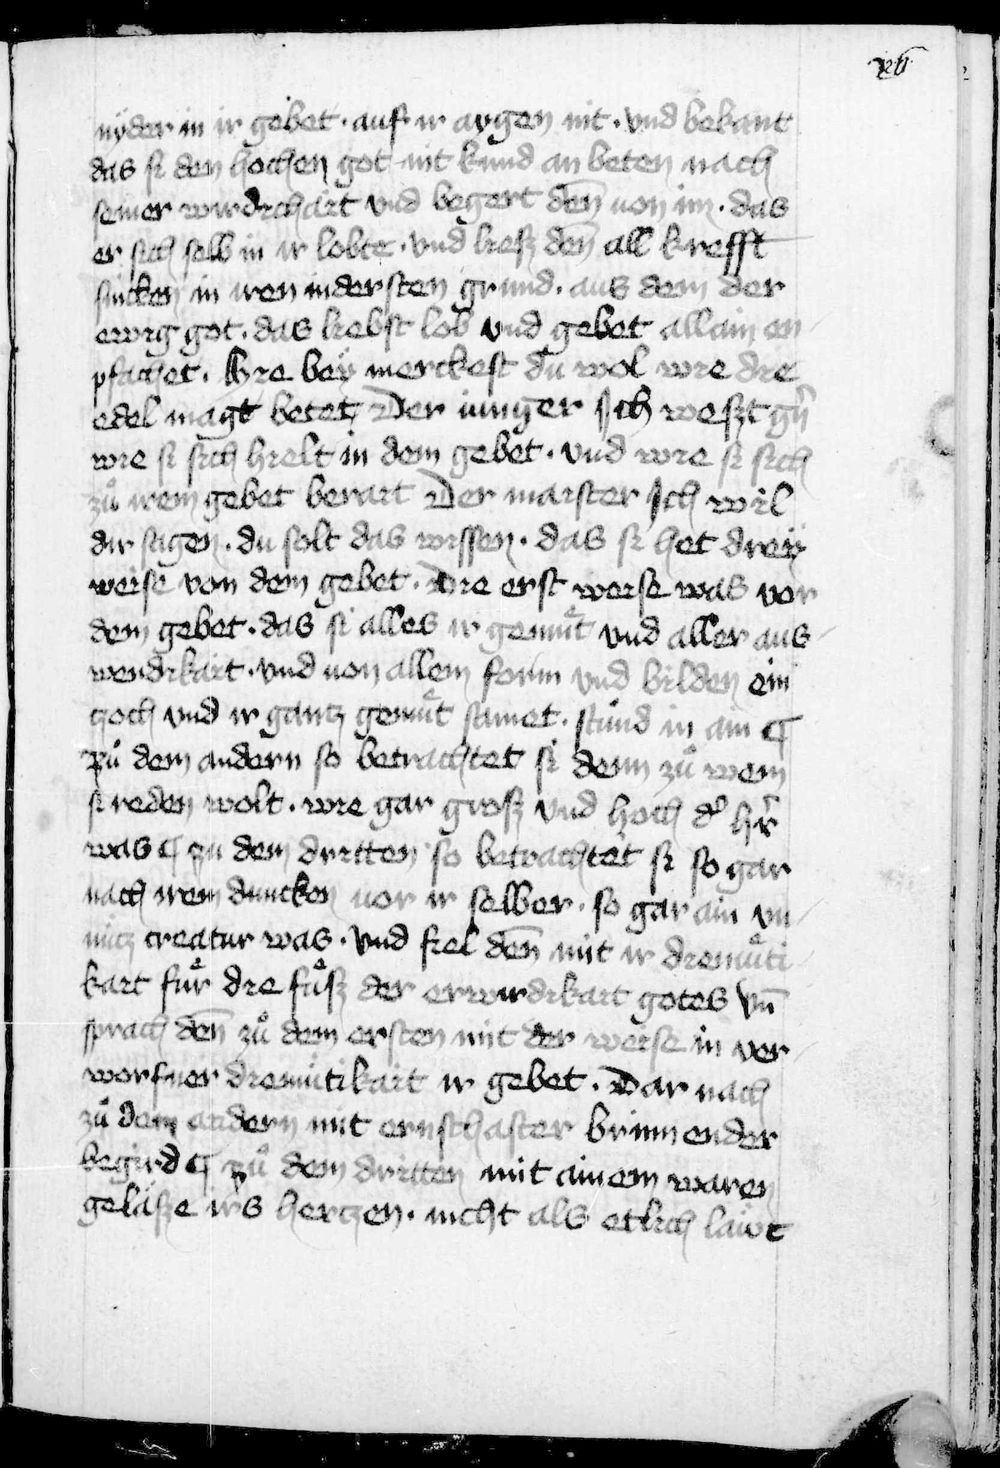 nyder in ir gebet · auf ir aygen nit · vnd bekant
das si den hochen got nit kund an beten nach
seiner wirdichait vnd begert den̄ von im · das
er sich selb in ir lobte · vnd liesz den̄ all krefft
sincken in iren indersten grund · aus dem der
ewig got · das liebst lob vnd gebet allain en-
pfachet · Hie bey merckest du wol wie die
edel magt betet Der iunger Ich weszt
wie si sich hielt in dem gebet · vnd wie si sich
zuͦ irem gebet berait Der maister Ich wil
dir sagen · du solt das wissen · das si het dreÿ
weise von dem gebet · Die erst weise was vor
dem gebet · das si alles ir gemuͤt vnd aller aus-
wendikait · vnd von allem form vnd bilden ein
zoch vnd ir gantz gemuͤt samet · stuͦnd in ain ¶
Zuͦ dem andern so betrachtet si denn zuͦ wem
si reden wolt · wie gar grosz vnd hoch dˀ hr̄
was ¶ zu dem dritten so betrachtet si so gar
nach irem duncken vor ir selber · so gar ain vn-
nütz creatur was · vnd fiel den̄ mit ir diemuͤti-
kait fuͤr die fuͤsz der erwirdikait gotes vn̄
sprach den̄ zuͦ dem ersten mit der weise in ver-
worfner diemütikait ir gebet · Dar nach
zuͦ dem andern mit ernschafter brinnender
begird ¶ zuͦ dem dritten mit ainem waren
geläsze irs hertzen · nicht als etlich läwt